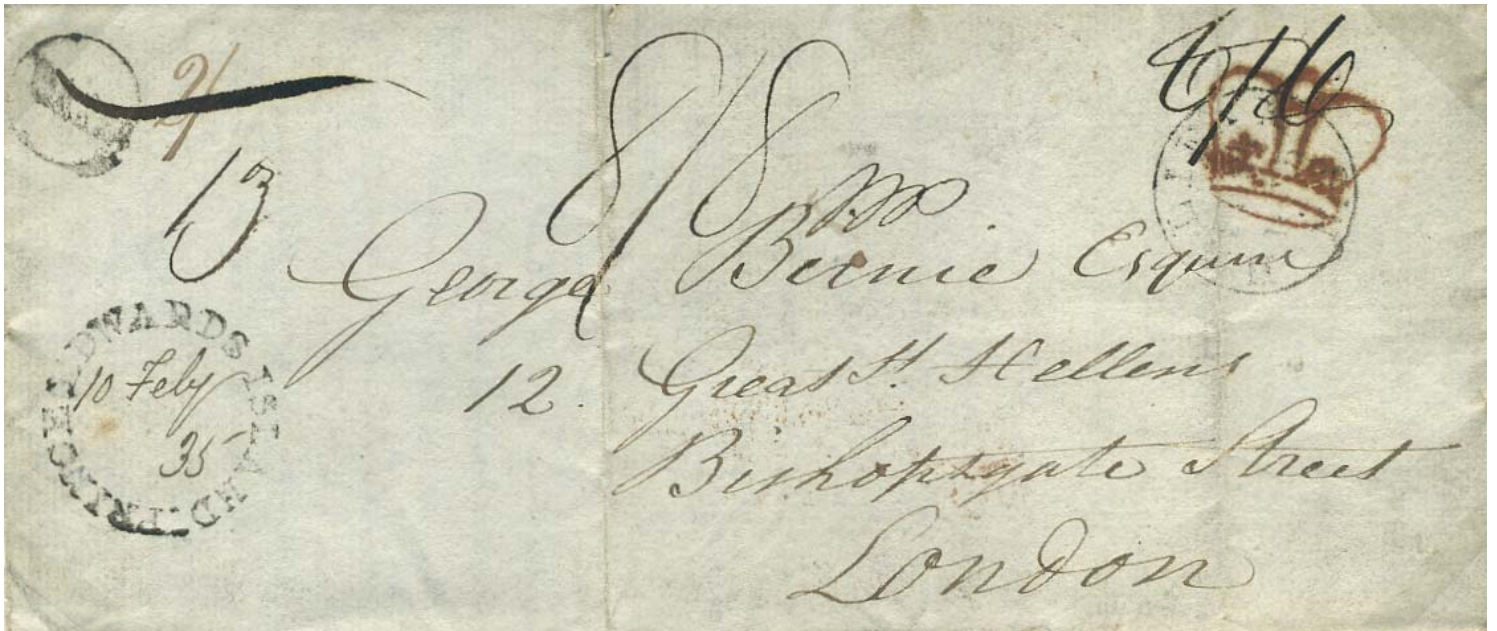 2/
13
8/8
George Birnie Esquire
12. Great St. Hellens
Bishopsgate Street
London
PRINCE EDWARDS ISLAND.
10 Feby
35